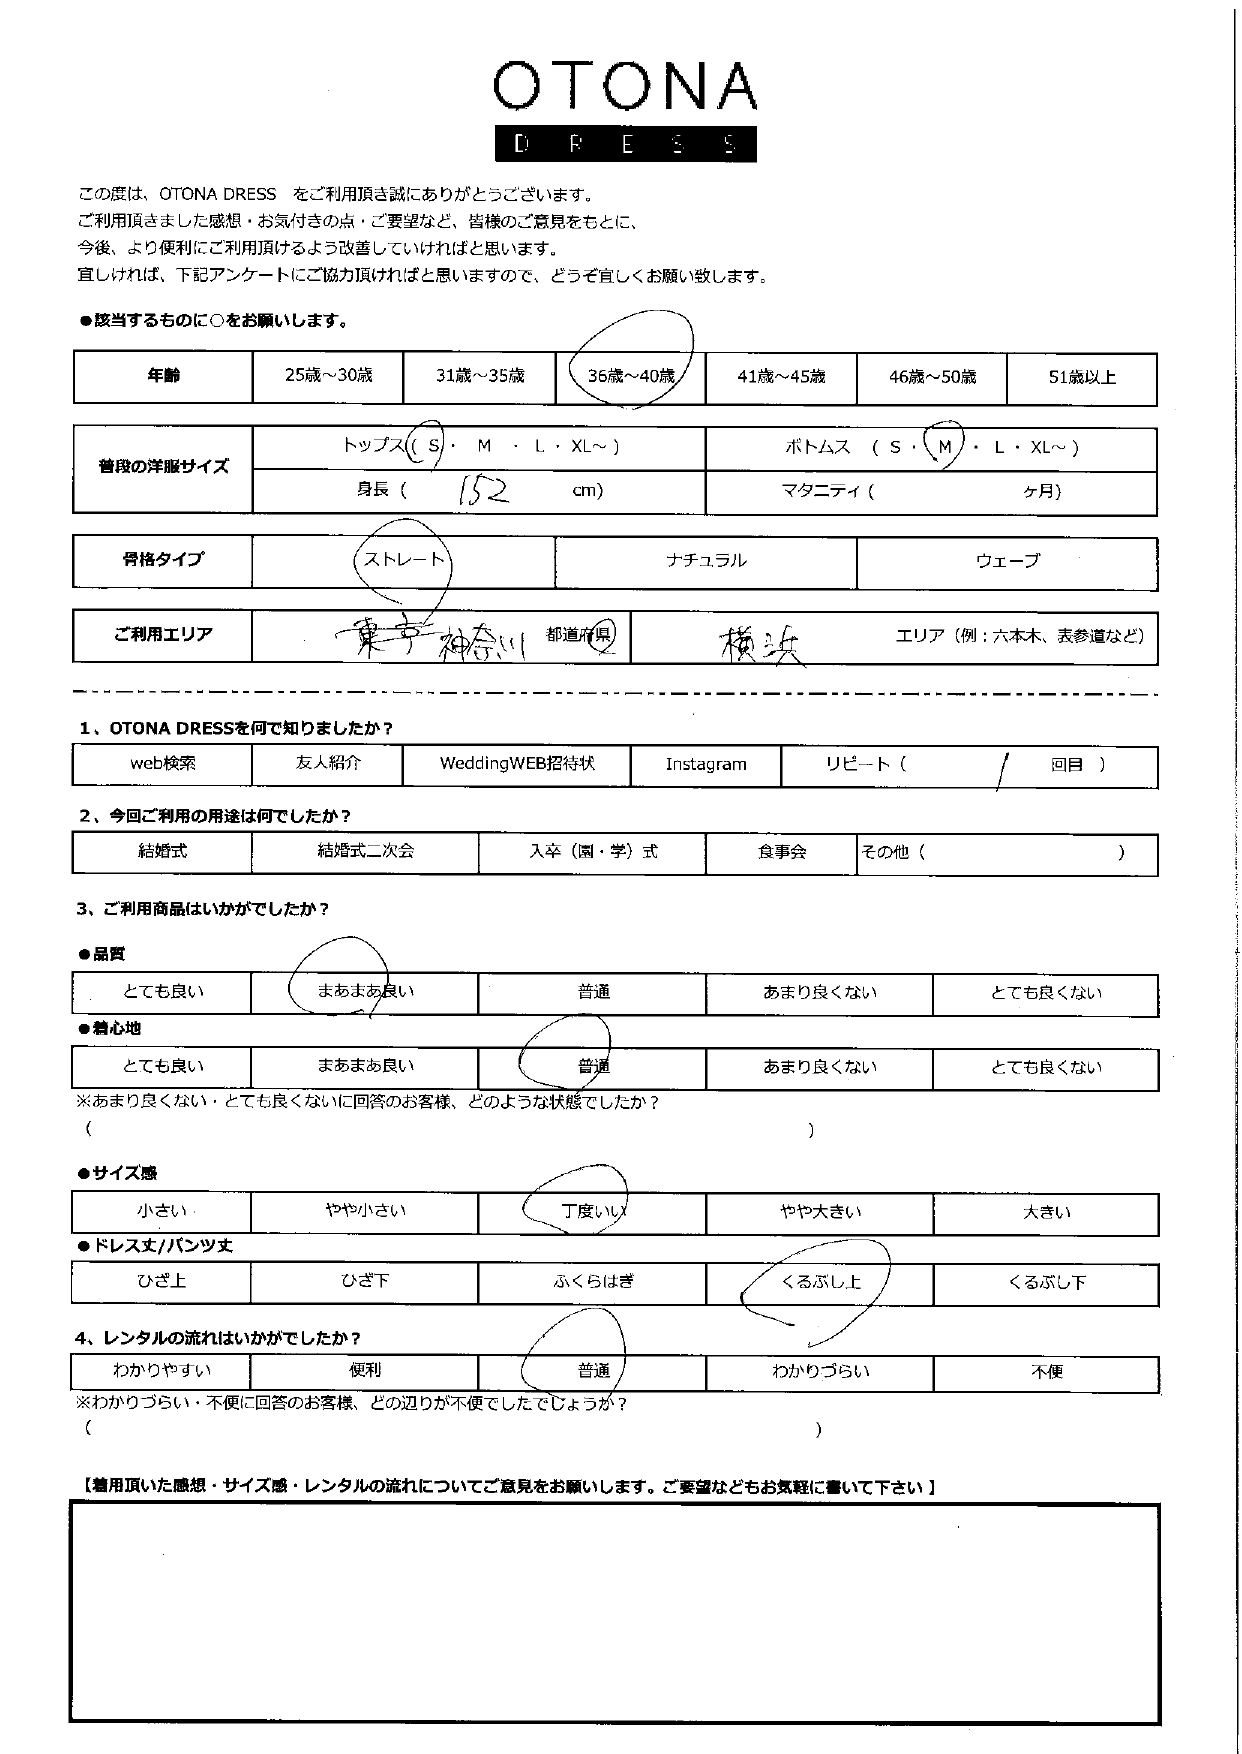 OTONA
DRESS
この度は、OTONA DRESS をご利用頂き誠にありがとうございます。
ご利用頂きました感想・お気付きの点・ご要望など、皆様のご意見をもとに、
今後、より便利にご利用頂けるよう改善していければと思います。
宜しければ、下記アンケートにご協力頂ければと思いますので、どうぞ宜しくお願い致します。
●該当するものに○をお願いします。
年齢 25歳～30歳 31歳～35歳 36歳～40歳 41歳～45歳 46歳～50歳 51歳以上
普段の洋服サイズ トップス( S ・ M ・ L ・ XL～ ) ボトムス ( S ・ M ・ L ・ XL～ )
身長 ( 152 cm) マタニティ ( ヶ月)
骨格タイプ ストレート ナチュラル ウェーブ
ご利用エリア 東京 神奈川 都道府県 横浜 エリア（例：六本木、表参道など）
1、OTONA DRESSを何で知りましたか？
web検索 友人紹介 WeddingWEB招待状 Instagram リピート（ / 回目 ）
2、今回ご利用の用途は何でしたか？
結婚式 結婚式二次会 入卒（園・学）式 食事会 その他（ ）
3、ご利用商品はいかがでしたか？
●品質
とても良い まあまあ良い 普通 あまり良くない とても良くない
●着心地
とても良い まあまあ良い 普通 あまり良くない とても良くない
※あまり良くない・とても良くないに回答のお客様、どのような状態でしたか？
( )
●サイズ感
小さい やや小さい 丁度いい やや大きい 大きい
●ドレス丈/パンツ丈
ひざ上 ひざ下 ふくらはぎ くるぶし上 くるぶし下
4、レンタルの流れはいかがでしたか？
わかりやすい 便利 普通 わかりづらい 不便
※わかりづらい・不便に回答のお客様、どの辺りが不便でしたでしょうか？
( )
【着用頂いた感想・サイズ感・レンタルの流れについてご意見をお願いします。ご要望などもお気軽に書いて下さい 】